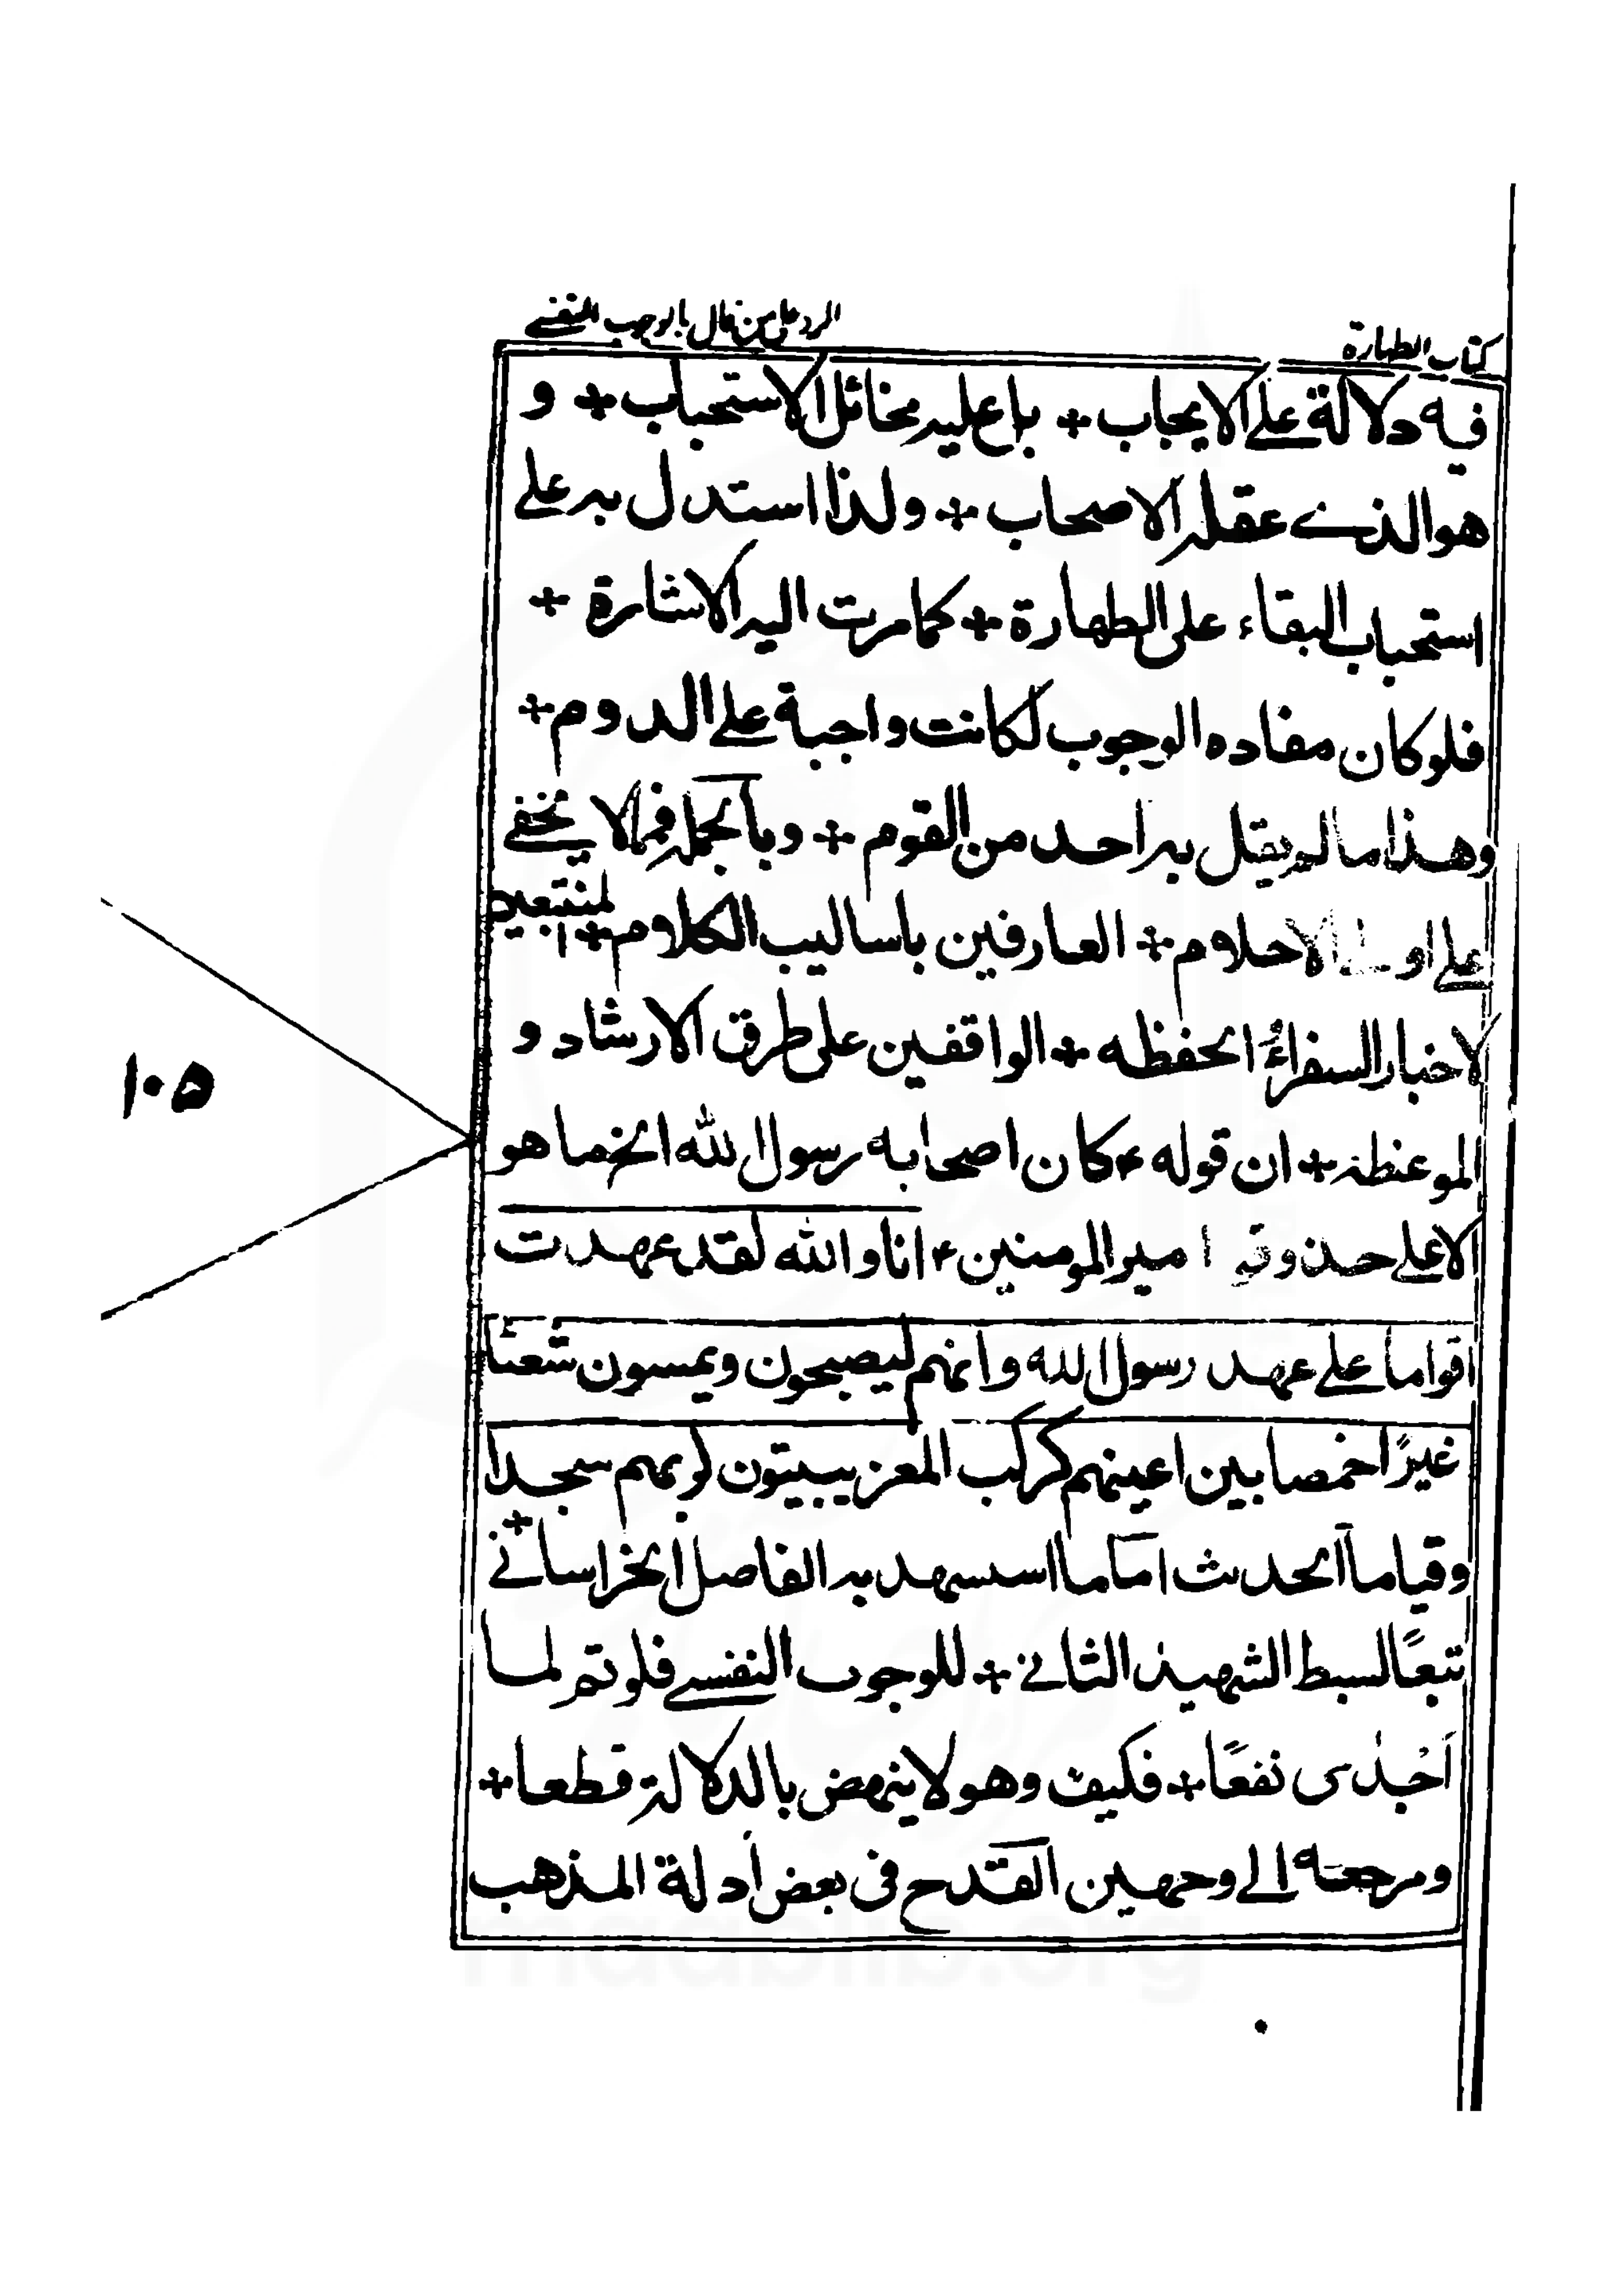 كتاب الطهارة
الرد على من قال بالوجوب النفسے
فيه دلالة علے الايجاب + باع عليه مخائل الاستحباب + و
هو الذے عقله الاصحاب + ولذا استدل به علے
استحباب البقاء على الطهارة + كما مرت اليه الاشارة +
فلو كان مفاده الوجوب لكانت واجبة علے الدوم +
وهذا ما لم يقل به احد من القوم + وبالجملة فمما لا يخفے
علے اولـ الاحلام + العارفين باساليب الكلام + المتتبعين
لاخبار السفراءُ الحفظه + الواقفين على طرق الارشاد و
الموعظة + ان قوله ع كان اصحابه رسول الله الخ ما هو
الا علے حذو قو امير المومنين ع انا والله لقد عهدت
اقواما علے عهد رسول الله وانهم ليصبحون ويمسون شعثا
غبرًا خمصا بين اعينهم كركب المعز يبيتون لربهم سجدا
وقياما الحديث اما ما استشهد به الفاضل الخراسانے +
تبعًا لسبط الشهيد الثانے + للوجوب النفسے فلو تم لما
اَجْدٰى نفعًا + فكيف وهو لا ينهض بالدلالة قطعا +
ومرجعه الے وجهين القدح فى بعض أدلة المذهب
١٠٥
maablib.org